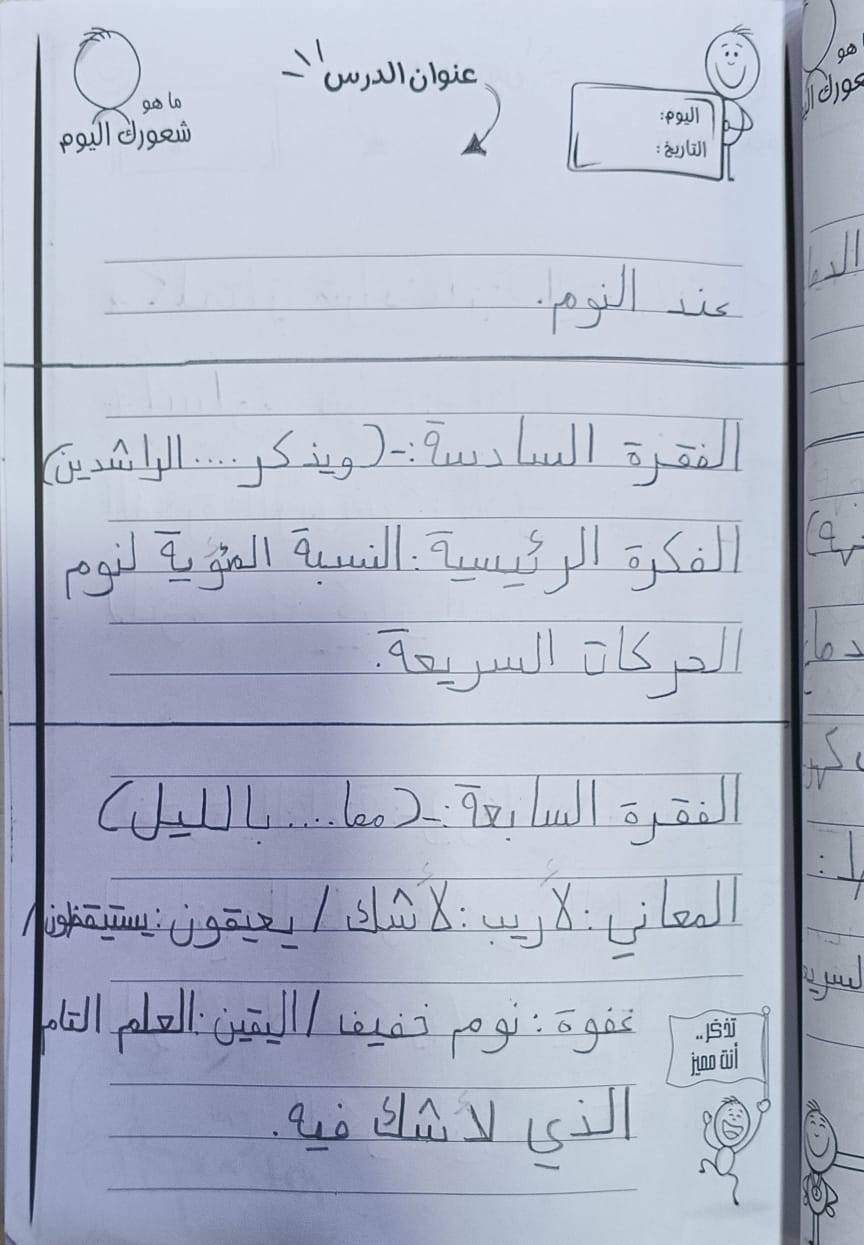 عنوان الدرس
اليوم:
التاريخ:
ما هو
شعورك اليوم
عند النوم.
الفقرة السادسة:-(ويذكر .... الراشدين)
الفكرة الرئيسية: النسبة المؤية لنوم
الحركات السريعة.
الفقرة السابعة:-(مما .... بالليل)
المعاني: لأريب: لأشك / يعيقون: يستيقظون/
غفوة: نوم خفيف / اليقين: العلم التام
الذي لا شك فيه.
تذكر..
أنت مميز